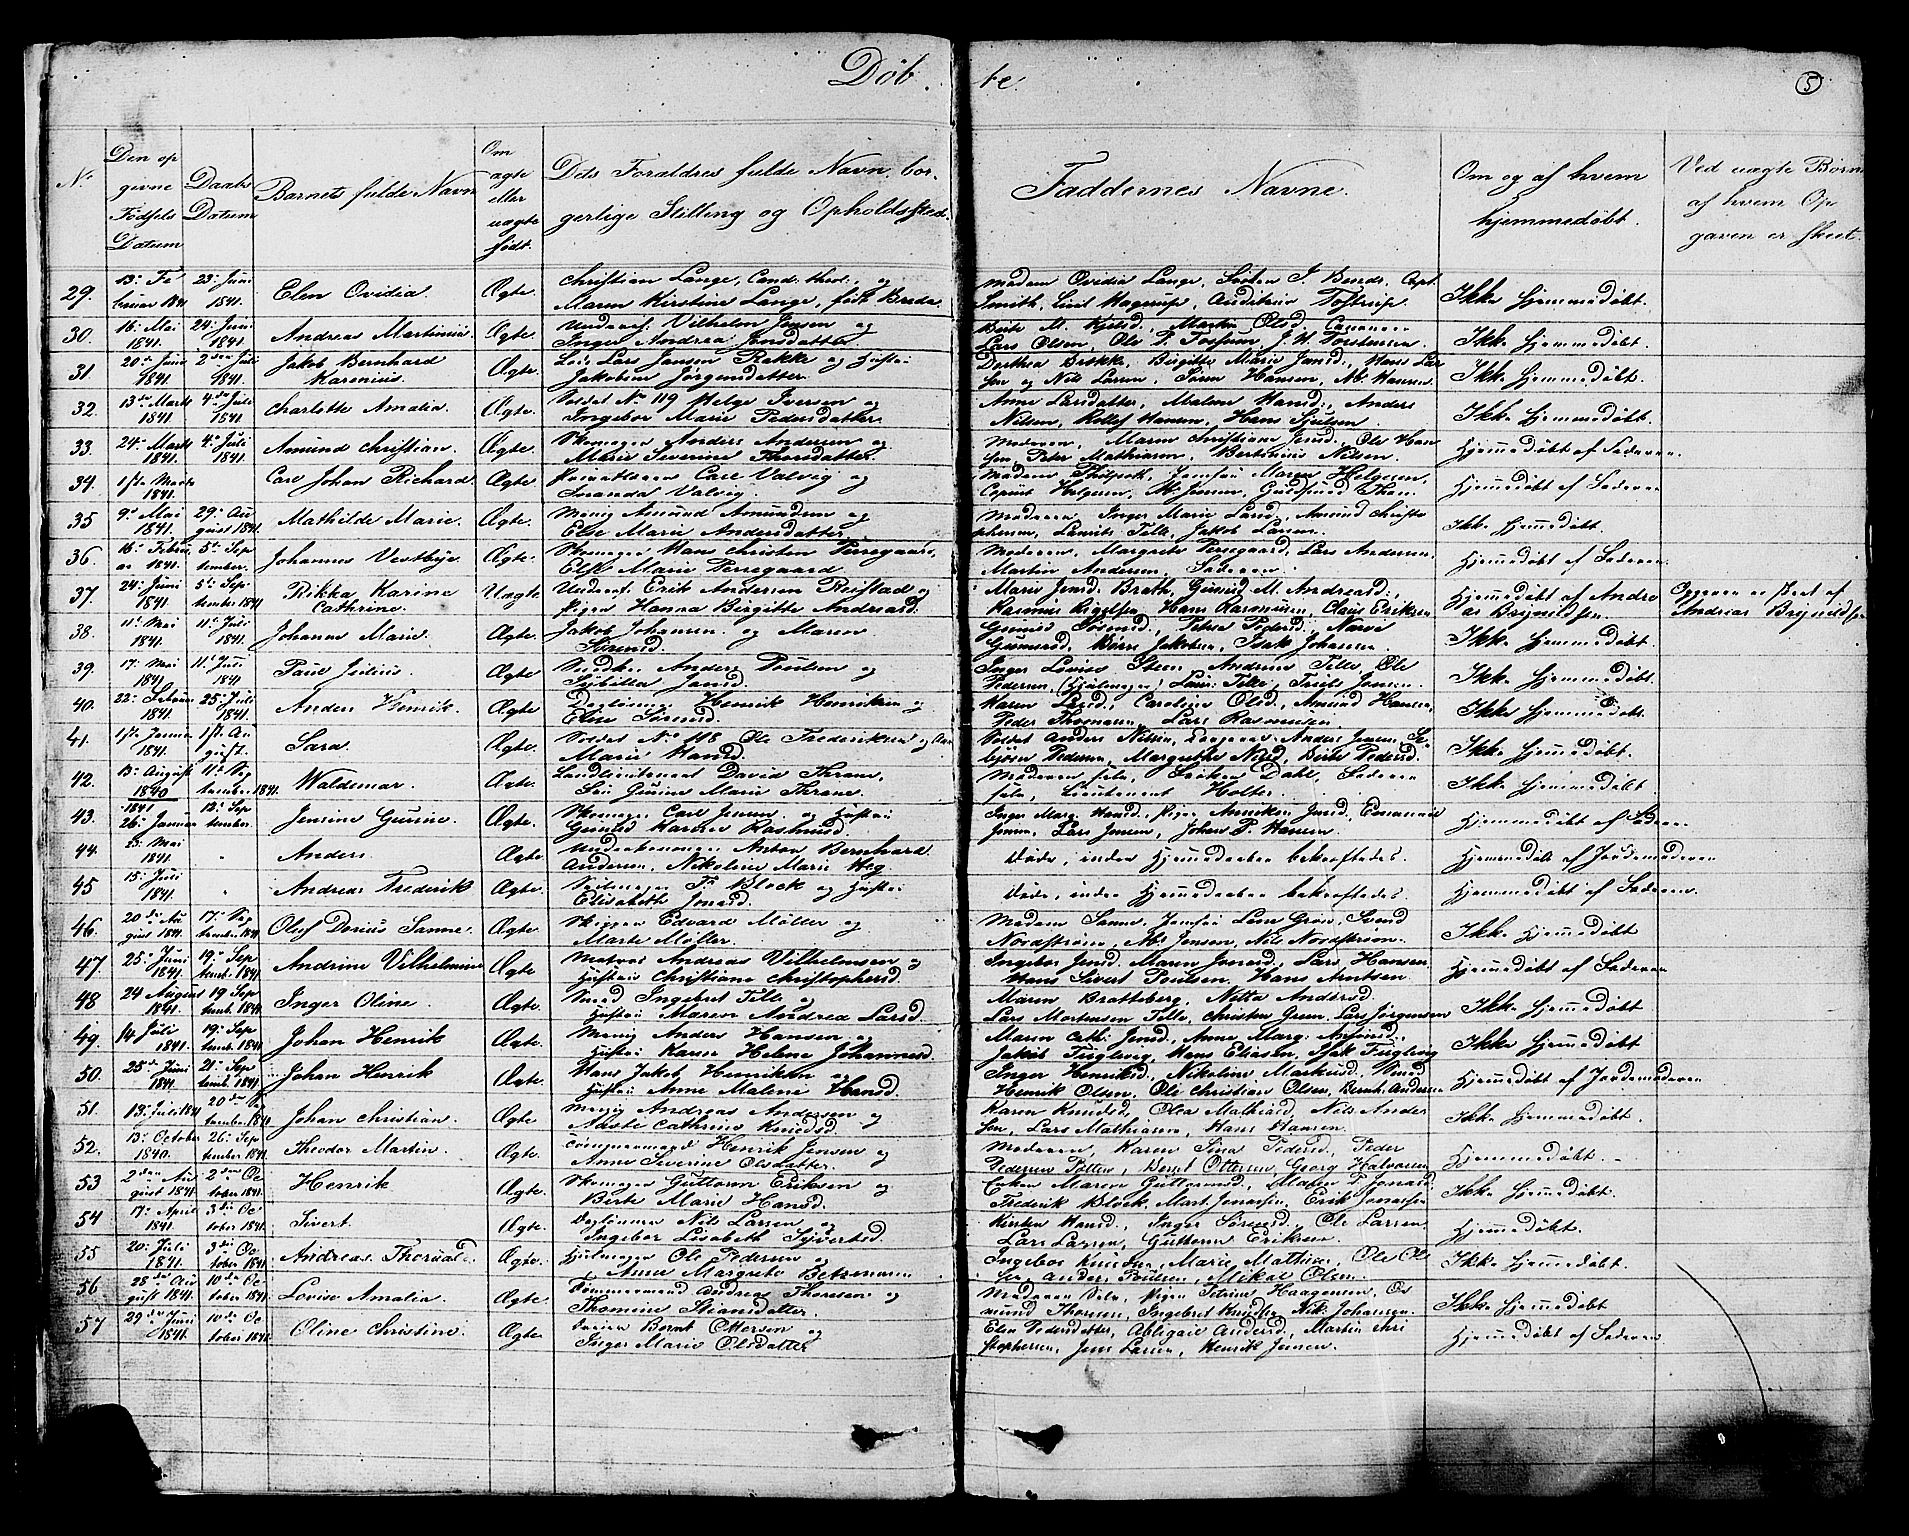 Døb. te. 5
No
Den opgivne Fødsels Datum
Daabs Datum
Barnets fulde Navn
Om ægte eller uægte født.
Dets Forældres fulde Navn, borgerlige Stilling og Opholdssted.
Faddernes Navne.
Om og af hvem hjemmedøbt.
Ved uægte Børn af hvem Opgaven er skeet.
29. 13. Februar 1841 23. Juni 1841. Elen Ovidia. Ægte. Christian Lange, Cand. theol., og
Maren Kirstine Lange, født Breda. Madam Ovidia Lange, Capt.
Smith, Hagerup, Auditeur Tostrup. Ikke hjemmedøbt.
30. 16. Mai 1841. 24. Juni 1841. Andreas Martinius. Ægte. Vilhelm Jensen og
Inger Andrea Jensdatter. Berte M. Kjelsd., Martin Olsd.,
Lars Olsen, Ole P. Fossum, J. H. Torstensen. Ikke hjemmedøbt.
31. 20de Juni 1841. 2den Juli 1841. Jakob Bernhard
Karenius. Ægte. Lars Jensen Bakke og Hustru
Jakobine Jørgensdatter. Dorthea Bakke, Birgitte Marie Jensd., Hans Larsen
og Nils Larsen, Søren Hansen, Ab. Hansen. Ikke hjemmedøbt.
32. 13de Marts 1841 4de Juli 1841 Charlotte Amalia. Ægte. Soldat No 119 Helge Iversen og
Ingebor Marie Pedersdatter. Anne Larsdatter, Malene Hansd., Anders
Nilsen, Rollef Hansen, Hans Sjulsen. Ikke hjemmedøbt.
33. 24. Marts 1841. 4. Juli 1841. Amund Christian. Ægte. Skomager Anders Andersen og
Marie Severine Thorsdatter. Moderen, Maren Christian Jensd., Ole Hansen
Peter Mathiasen, Bertinius Nilsen. Hjemmedøbt af Faderen.
34. 1ste Marts 1841. Carl Johan Richard. Ægte. Carl Valvig og
Amanda Valvig. Madam Philpoth, Jomfru Maren Helgesen,
Helgesen, M. Jensen, Gudsmed Than. Hjemmedøbt af Faderen.
35 9. Mai 1841. 29. August 1841. Mathilde Marie. Ægte. Amund Amundsen og
Else Marie Andersdatter. Moderen, Inger Marie Larsd., Amund Christophersen,
Laurits Telle, Jakob Larsen. Ikke hjemmedøbt.
36. 16. Februar 1841. 5te September. Johannes Vestbye. Ægte. Skomager Hans Christen Persegaard,
Else Marie Persegaard. Moderen, Margrete Persegaard, Lars Andersen,
Martin Andersen, Faderen. Hjemmedøbt af Faderen.
37. 24. Juni 1841. 5te September 1841 Rikka Karine
Cathrine. Uægte Erik Andersen Reistad og
Pigen Hanna Birgitte Andreasd. Marie Jensd. Brath, Gunild M. Andreasd.,
Rasmus Rigelsen, Hans Rasmusen, Claus Eriksen. Hjemmedøbt af Andreas
Brynildsen. Opgaven er skeet af
Andreas Brynildsen
38. 11te Mai 1841. 11te Juli 1841. Johanne Marie. Ægte. Jakob Johansen og Maren
Hansd. Petra Pedersd.,
Børre Jakobsen, Isak Johansen. Ikke hjemmedøbt.
39. 17. Mai 1841. 11. Juli 1841 Paul Julius. Ægte. Anders Poulsen og
Sibilla Jansd. Inger Lovise Steen, Andreas Telle, Ole
Pedersen, (Hjulmager) Laur. Telle, Jensen. Ikke hjemmedøbt.
40. 22. Februar 1841. 25. Juli 1841. Anders Henrik. Ægte Henrik Henriksen og
Else Sørensd. Karen Larsd., Caroline Olsd., Amund Hansen,
Peder Thomasen, Lars Rasmusen. Ikke hjemmedøbt.
41. 1ste Januar 1841. 1ste August. Sara. Ægte. Soldat No 118 Ole Frederiksen og
Marie Hansd. Soldat Anders Nilsen, Anders Jensen,
Pedersen, Margrethe Nilsd., Birthe Pedersd. Ikke hjemmedøbt.
42. 13. August 1840 11te September 1841. Waldemar. Ægte. David Thrane,
Frue Gusine Marie Thrane. Moderen selv, Frøken Dahl, Faderen
selv, Lieutenant Holter. Ikke hjemmedøbt.
43. 1841 26. Januar 12. September. Jensine Gusine. Ægte. Skomager Carl Jensen og Hustru
Gunild Karine Rasmusd. Inger Marg. Hansd., Pigen Anniken Jensd., Emanuel
Jensen, Lars Jensen, Johan P. Hansen. Hjemmedøbt af Faderen
44. 23. Mai 1841. " Anders. Ægte. Anton Bernhard
Andersen, Nikoline Marie Høeg. Døde, inden Hjemmedaaben bekræftedes. Hjemmedøbt af Jordemoderen
45 15. Juli 1841. " Andreas Frederik Ægte. Seilmager Fr. Block og Hustru
Elisabeth Jonasd. Døde, inden Hjemmedaaben bekræftedes. Hjemmedøbt af Faderen.
46. 20de August 1841. 17. September 1841 Oluf Dorius Sanne. Ægte. Skipper Edvard Møller og
Marte Møller. Madam Sanne, Jomfru Lene Grøn, Svend
Nordstrøm, Ab. Jensen, Nils Nordstrøm. Ikke hjemmedøbt
47. 25. Juni 1841. 19. Septemb. 1841 Andrine Vilhelmine Ægte. Matros Andreas Vilhelmsen og
Hustru Christiane Christophersd. Ingebor Jensd., Maren Jonasd., Lars Hansen
Hans Sivert Poulsen, Hans Arntsen. Hjemmedøbt af Faderen
48 24 August 1841. 19 Septemb. 1841. Inger Oline. Ægte. Smed Ingebret Telle og
Hustru Maren Andrea Larsd. Maren Bratteberg, Netta Andersd.
Lars Mortensen Telle, Christen Green, Lars Jørgensen Ikke hjemmedøbt.
49. 14 Juli 1841. 19. September 1841. Johan Henrik Ægte. Anders Hansen og
Hustru Karen Helene Johannesd. Maren Cath. Jensd., Anne Marg. Amundsd.
Jakob Fuglevig, Hans Eliasen, Isak Fuglevig Ikke hjemmedøbt
50. 25de Juni 1841. 21. Septemb. 1841 Johan Henrik Ægte. Hans Jakob Henriksen og
Hustru Anne Malene Hansd. Inger Henriksd., Nikoline Markusd., Svend
Henrik Olsen, Ole Christian Olsen, Bernh. Andersen Hjemmedøbt af Jordemoderen
51. 13. Juli 1841 20de September 1841 Johan Christian. Ægte. Andreas Andersen og
Aaste Cathrine Knudsd. Karen Knudsd., Olea Mathiasd., Nils Andersen,
Lars Mathiasen, Hans Hansen. Ikke hjemmedøbt.
52. 13. October 1840. 26. September 1841. Theodor Martin. Ægte. Tømmermand Henrik Jensen og
Anne Severine Olsdatter. Moderen, Karen Sina Pedersd., Peder
Pedersen Pollen, Bernt Ottersen, Georg Halvorsen Hjemmedøbt.
53 2den August 1841. 2den October 1841. Henrik Ægte. Skomager Guttorm Eriksen og
Berte Marie Hansd. Enken Maren Guttormsd.,
Frederik Block, Mart. Jonassen, Erik Jonassen Ikke hjemmedøbt.
54 17. April 1841. 3die October 1841. Sivert. Ægte. Nils Larsen og
Ingebor Lisabeth Syvertsd. Kirsten Hansd., Inger Sørensd., Ole Larsen
Lars Larsen, Guttorm Eriksen. Hjemmedøbt.
55 20. Juli 1841. 3die October 1841 Andreas Thorvald. Ægte. Hjulmager Ole Pedersen og
Anne Margrete Ingebor Knudsen, Marie Mathisen, Ole Olsen,
Anders Poulsen, Mikal Olsen. Ikke hjemmedøbt.
56 28de August 1841. 10de October 1841. Lovise Amalia. Ægte. Tømmermand Andreas Thoresen og
Thomine Stiansdatter. Moderen selv, Pigen Petrine Haagensen, Osmund
Thoresen, Ingebret Knudsen, Nik. Johansen. Ikke hjemmedøbt
57 29de Juni 1841. 10de October 1841. Oline Christine. Ægte. Bernt Ottersen og
Inger Marie Olsdatter Elen Pedersdatter, Abligael Andersd., Martin Christophersen,
Jens Larsen, Henrik Jensen. Hjemmedøbt af Faderen